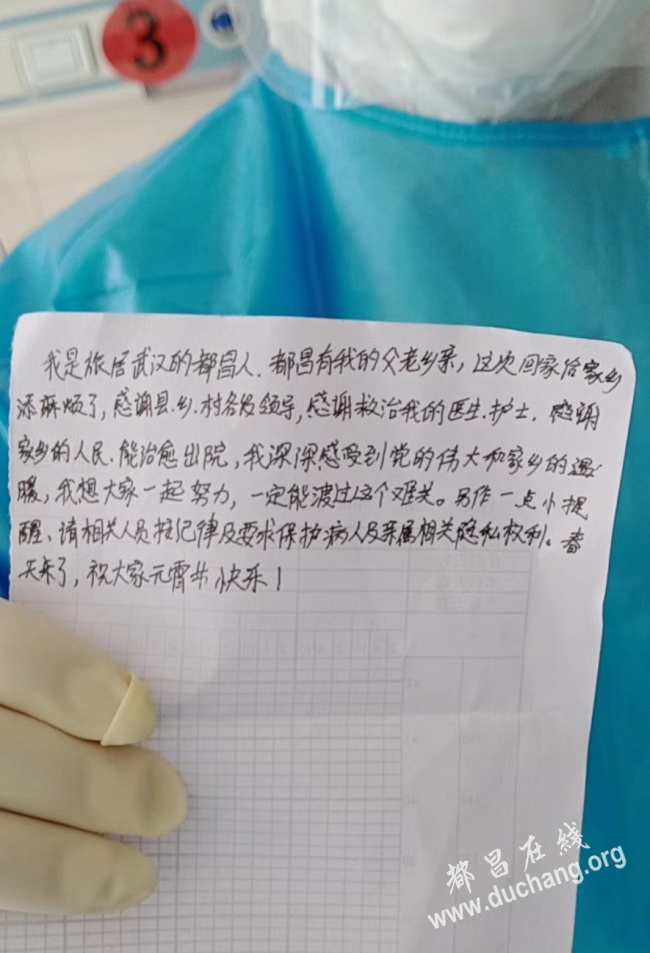 3
我是旅居武汉的都昌人.都昌有我的父老乡亲,这次回家给家乡
添麻烦了,感谢县.乡.村各级领导,感谢救治我的医生.护士.感谢
家乡的人民.能治愈出院,我深深感受到党的伟大和家乡的温
暖,我想大家一起努力,一定能渡过这个难关。另作一点小提
醒、请相关人员按纪律及要求保护病人及亲属相关隐私权利。春
天来了,祝大家元宵节快乐!
都昌在线
www.duchang.org